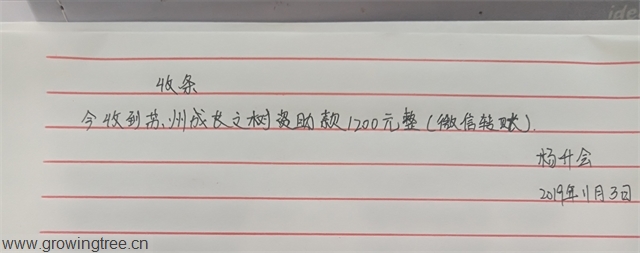 收条
今收到苏州成长之树资助款1200元整(微信转账).
杨升会
2019年11月3日
www.growingtree.cn